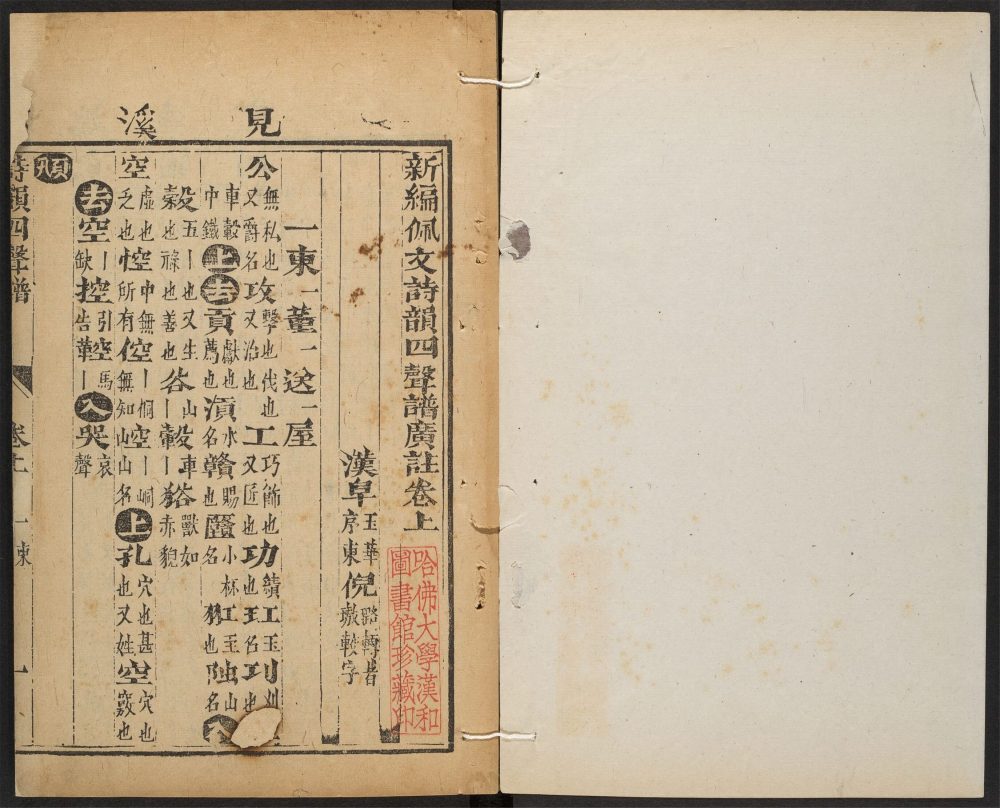 新編佩文詩韻四聲譜廣註卷上
漢皐玉華序東倪璐
哈佛大學漢和圖書館珍藏印
一東一董一送一屋
見
公無私也又爵名攻擊也伐也又治也工巧飾也又匠也功績也玒玉名刓
車轂中鐵上去貢獻也薦也湏水名贛賜也小杯名玒玉也山名入
穀五丨也又生也善也祿也谷山丨轂車丨獸如赤豿
溪
空虛也乏也悾中無所有倥丨侗無知崆丨峒山名上孔穴也甚也又姓空穴也竅也
去空丨缺控引丨告鞚馬丨入哭哀聲
詩韻四聲譜 卷上 一東 一